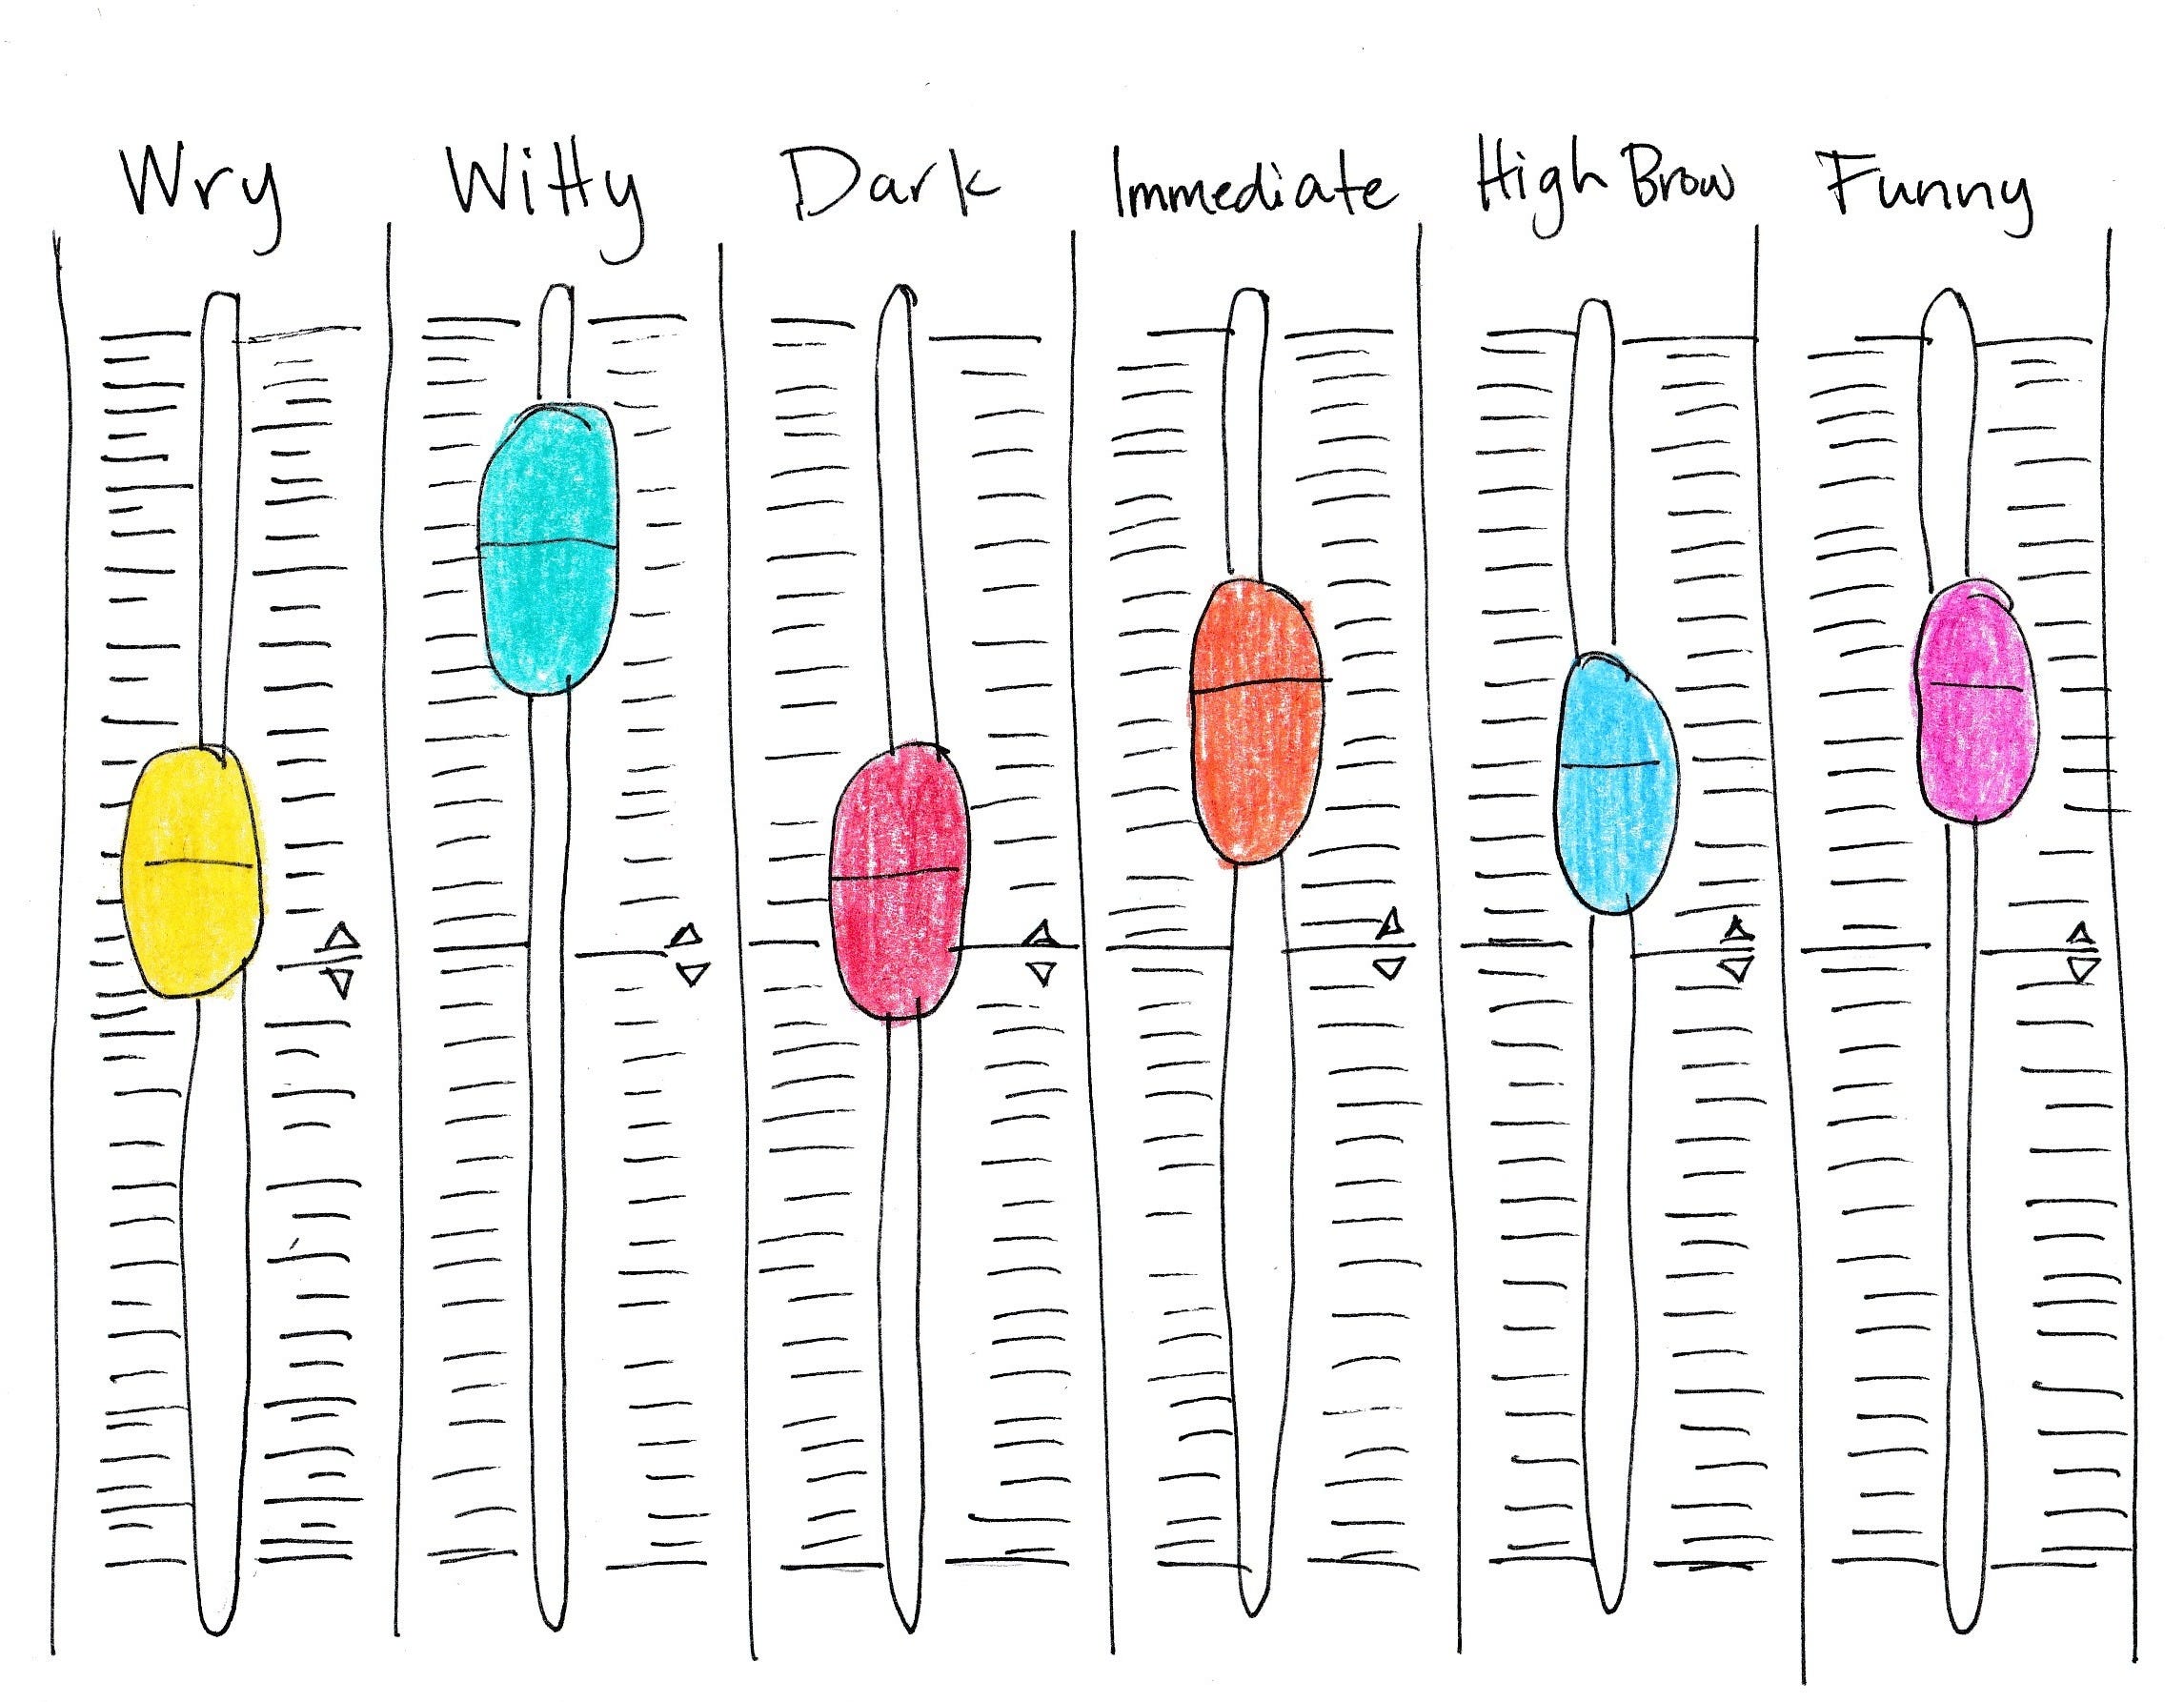 Wry Witty Dark Immediate High Brow Funny